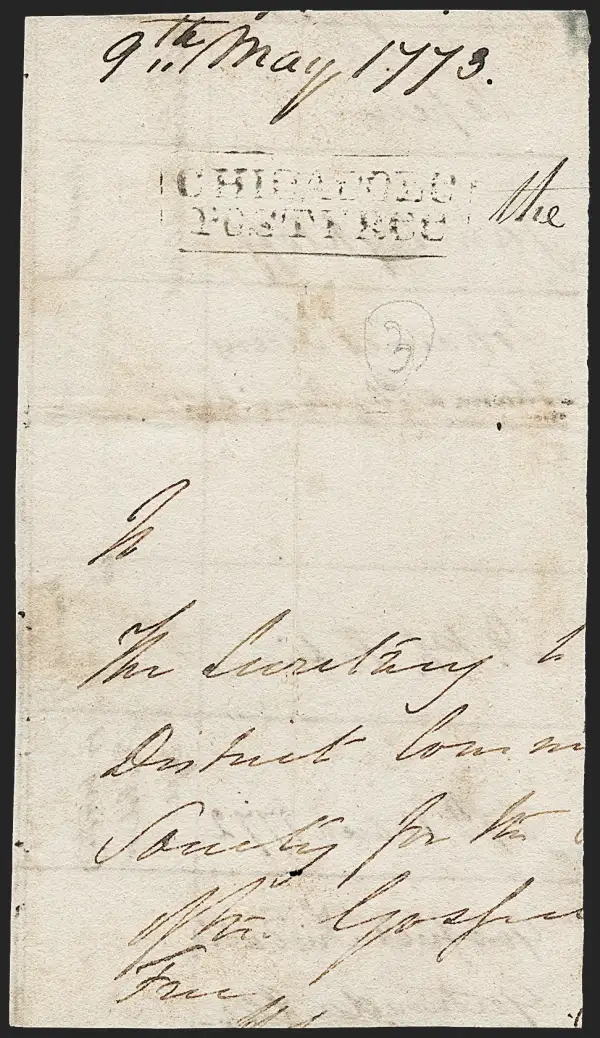 9th May 1773.
CHICACOLE
POST FREE
the
3
To
The Secretary to
District Comm
Society for the
of the Gospel
Free